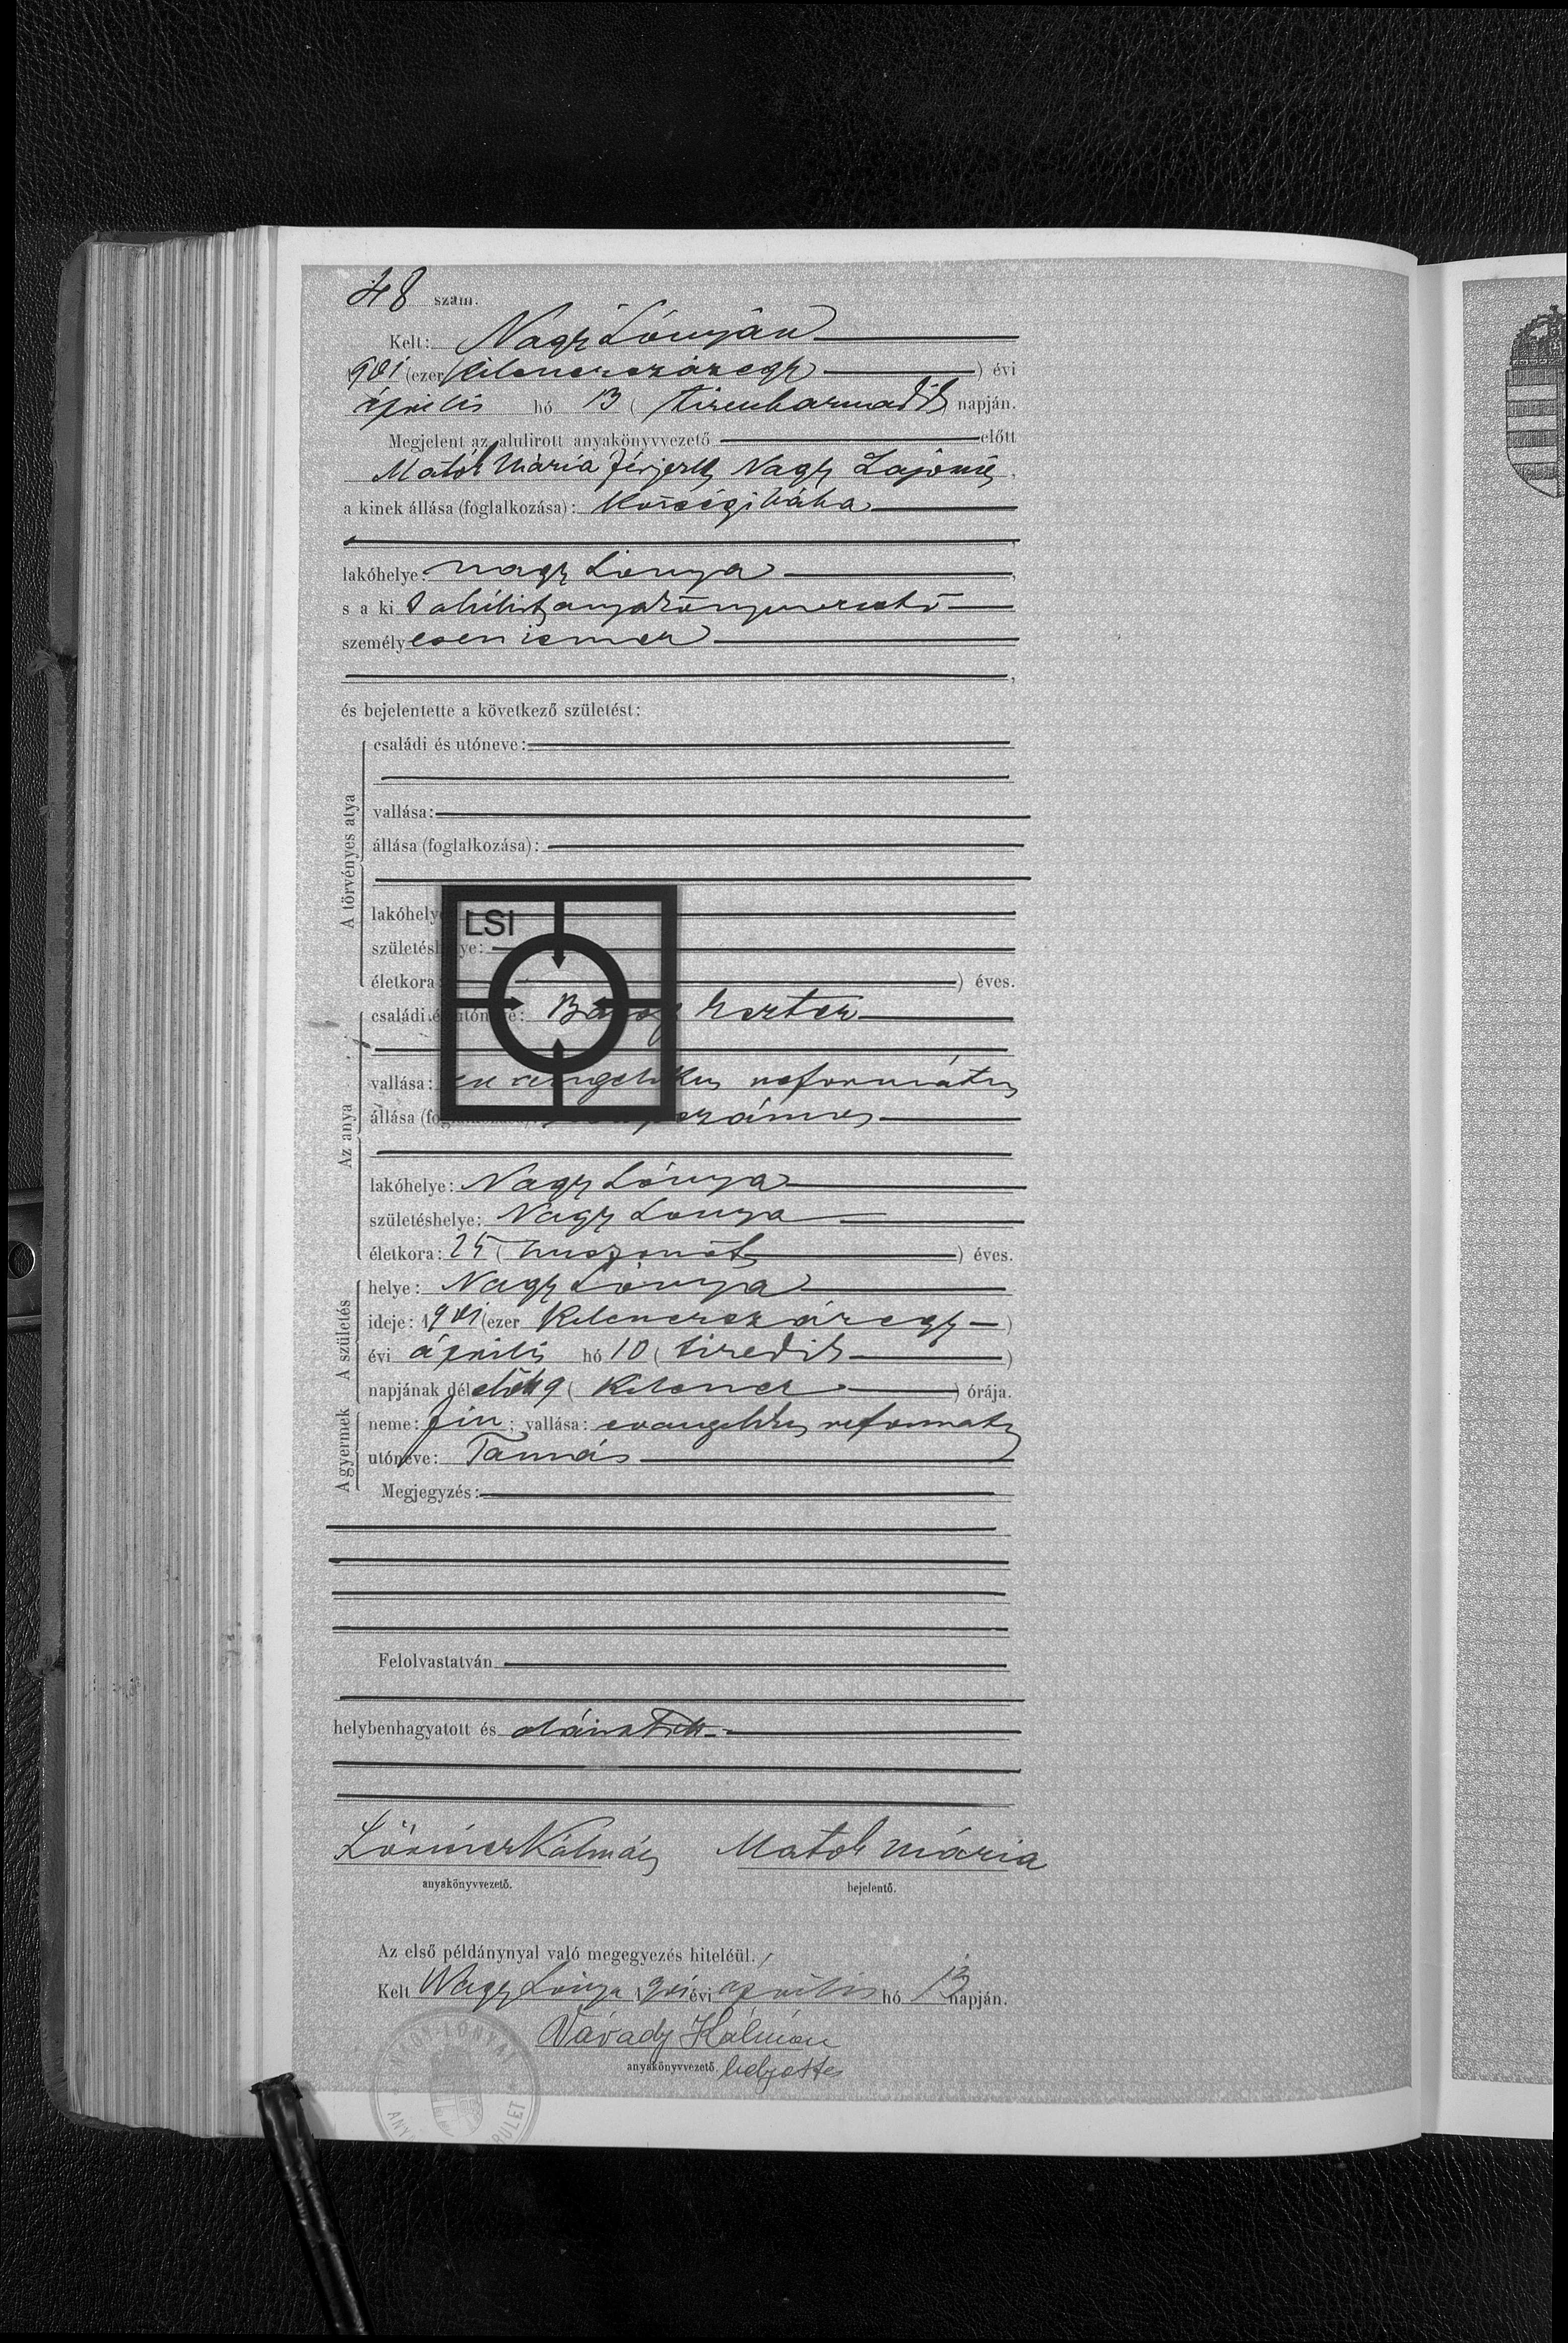 48 szám.
Kelt: Nagy Lónyán
1901 (ezer kilenczszázegy) évi
április hó 13 (tizenharmadik) napján.
Megjelent az alulirott anyakönyvvezető előtt
Matók Mária férjezett Nagy Lajosné,
a kinek állása (foglalkozása): községi bába
lakóhelye: Nagy Lónya,
s a ki anyakönyvvezető
személyesen ismer
és bejelentette a következő születést:
A törvényes atya
családi és utóneve:
vallása:
állása (foglalkozása):
lakóhelye
LSI
születéshelye:
életkora ) éves.
Az anya
családi és utóneve: Eszter
vallása: evangelikus református
állása (foglalkozása): napszámos
lakóhelye: Nagy Lónya
születéshelye: Nagy Lonya
életkora: 25 (huszonöt) éves.
A születés
helye: Nagy Lónya
ideje: 1901 (ezer kilenczszázegy)
évi április hó 10 (tizedik)
napjának délelőtt 9 (kilencz) órája.
A gyermek
neme: fiu; vallása: evangelikus reformatus
utóneve: Tamás
Megjegyzés:
Felolvastatván
helybenhagyatott és aláiratott.
Kálmán Matok mária
anyakönyvvezető. bejelentő.
Az első példánynyal való megegyezés hiteléül.
Kelt Nagy Lónya 1901 évi április hó 13 napján.
Várady Kálmán
anyakönyvvezető helyettes
NAGY-LÓNYAI